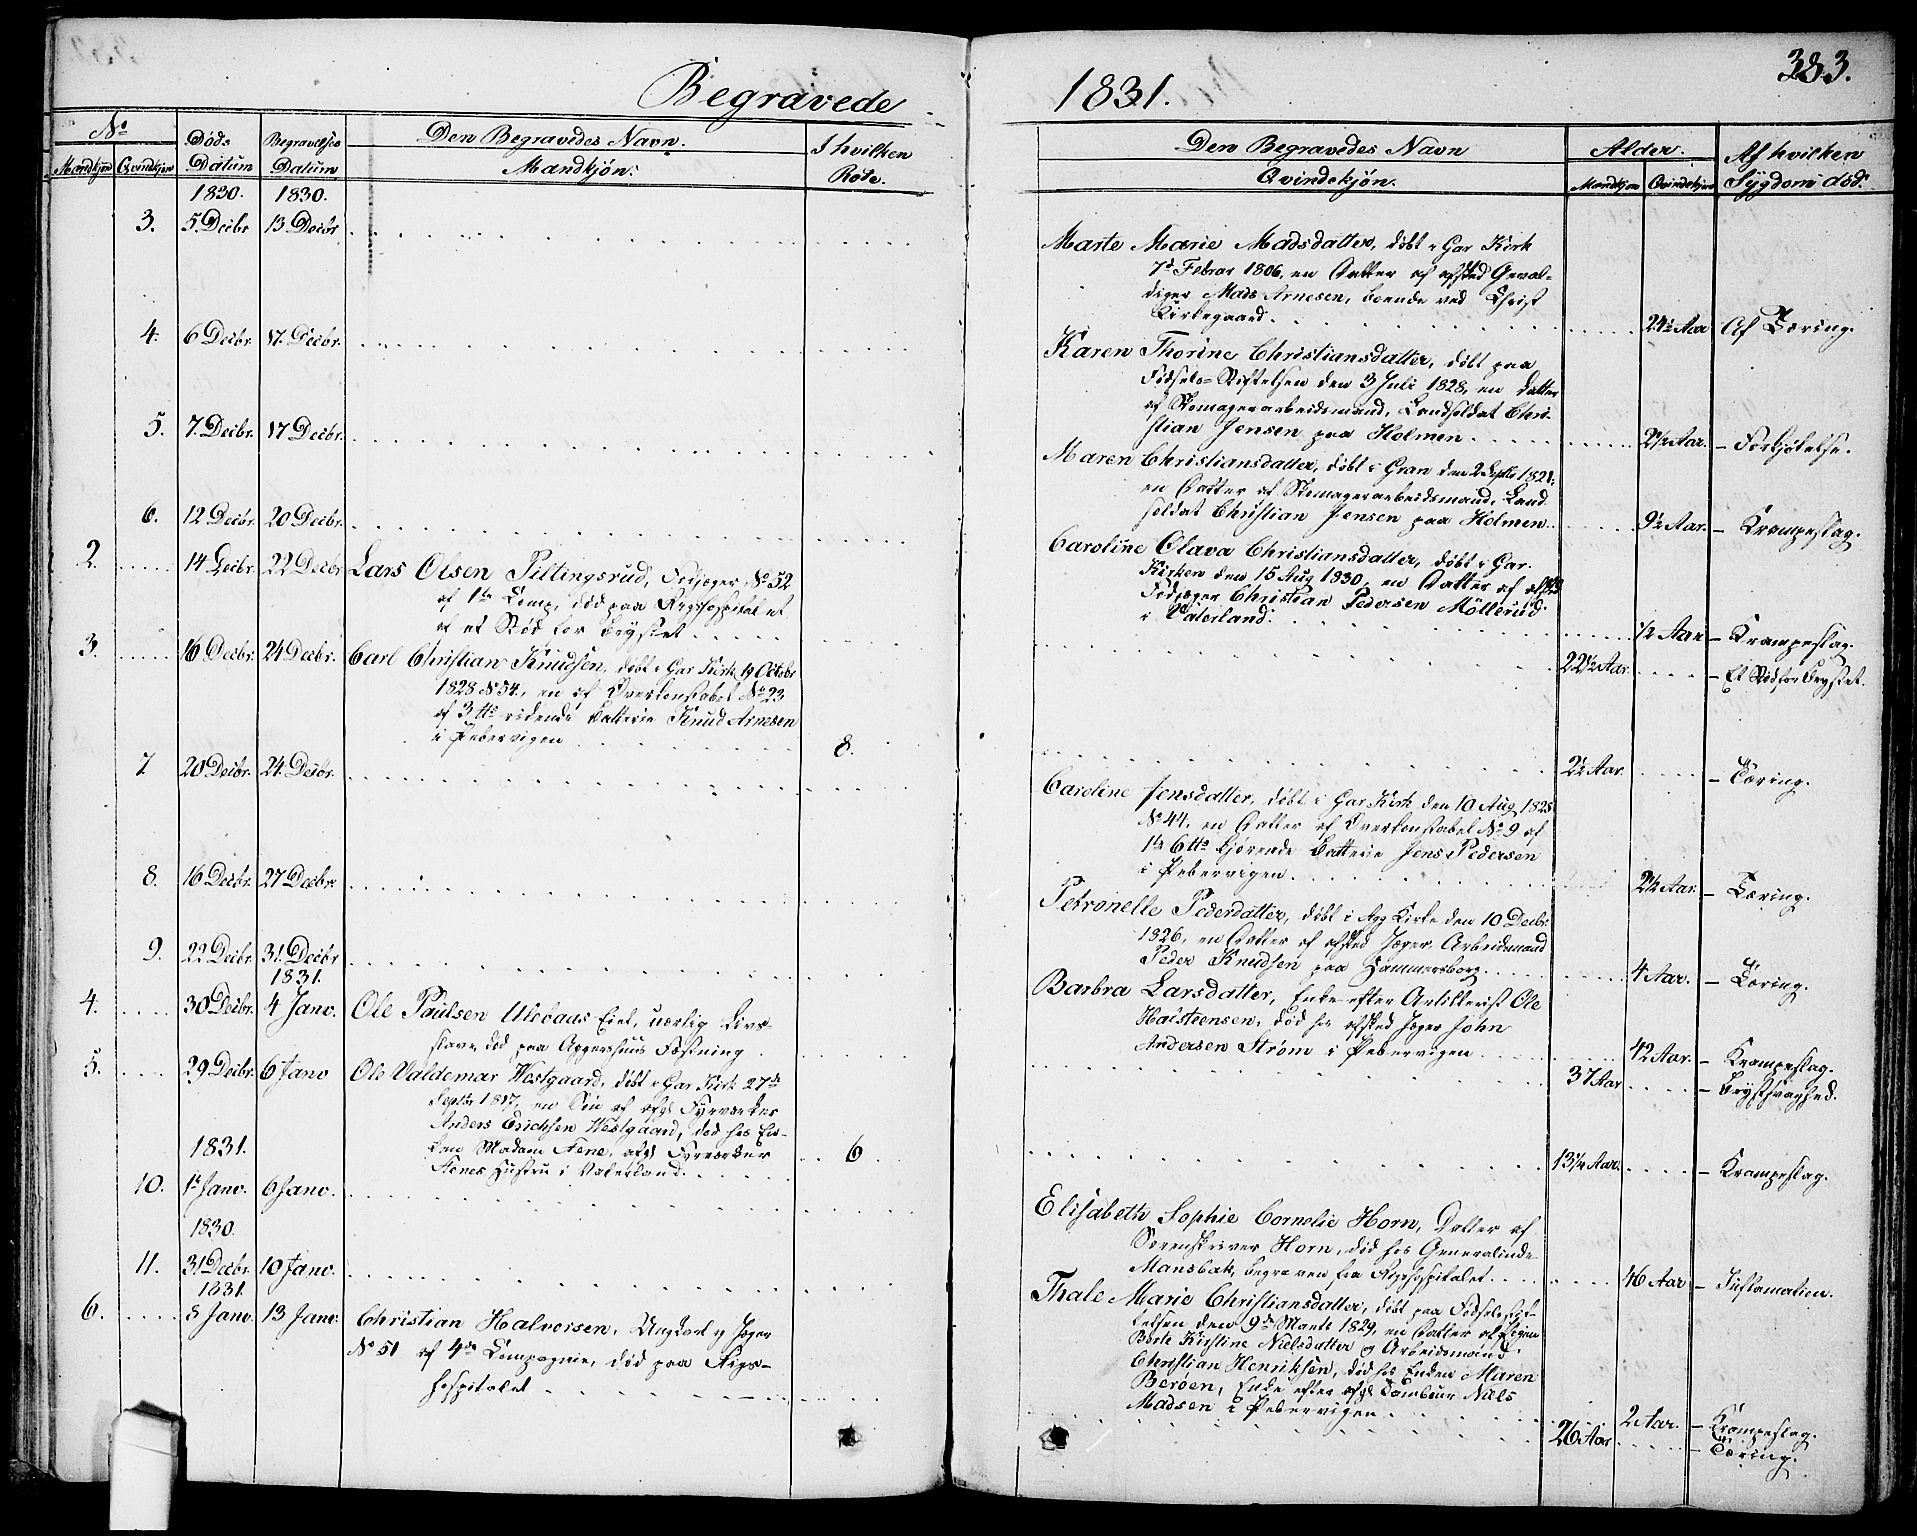 383.
Begravede 1831.
No
Mandkjön Qvindkjön
Døds Datum
Begravelses Datum
Den Begravedes Navn.
Mandkjön.
I hvilken Rode.
Den Begravedes Navn
Qvindekjön.
Alder.
Mandkjön Qvindekjön
Af hvilken Sÿgdom død.
1830. 1830.
3. 5. Decbr 13 Decbr
Marte Marie Madsdatter, døbt i Gar Kirk
7d Februar 1806, en Datter af afsked Geval-
diger Mads Arnesen, boende ved Christ
Kirkegaard.
24½ Aar Af Tæring.
4. 6 Decbr. 17. Decbr.
Karen Thorine Christiansdatter, døbt paa
Fødsels-Stiftelsen den 3 Juli 1828, en Datter
af Skomagerarbeidsmand, Landsoldat Chri-
stian Jensen paa Holmen
2½ Aar. - Forkjølelse.
5. 7. Decbr. 17 Decbr.
Maren Christiansdatter, døbt i Gran den 2 Septbr 1821,
en Datter af Skomagerarbeidsmand, Land
soldat Christian Jensen paa Holmen
9½ Aar. - Krampeslag.
6. 12 Decbr. 20 Decbr.
Caroline Olava Christiansdatter, døbt i Gar.
Kirken den 15 Aug 1830, en Datter af afsked
Fodjæger Christian Pedersen Möllerud
i Vaterland.
½ Aar - Krampeslag.
2. 14 Decbr. 22 Decbr
Lars Olsen Pillingsrud, Fodjæger No 52
af 1te Comp, død paa Rigshospitalet
af et Stød for Brystet
22½ Aar. - Et Stød for Brystet.
3. 16 Decbr. 24 Decbr.
Carl Christian Knudsen, døbt i Gar Kirk 19 Octobr
1828 No 54, en af Overkonstabel No 23
af 3tte ridende Batterie Knud Arnesen
i Pebervigen
8.
2½ Aar. - Tæring.
7 20 Decbr. 24. Decbr.
Caroline Jensdatter, døbt i Gar Kirk den 10 Aug 1828
No 44, en Datter af Overkonstabel No 9 af
6tte kjørende Batterie Jens Pedersen
i Pebervigen
2½ Aar. - Tæring.
8. 16 Decbr. 27 Decbr.
Petronelle Pedersdatter, døbt i Agg Kirke den 10 Decbr.
1826, en Datter af afsked Jæger, Arbeidsmand
Peder Knudsen paa Hammersborg.
4 Aar. - Tæring.
9. 22 Decbr. 31. Decbr
1831.
Barbra Larsdatter, Enke efter Artillerist Ole
Halsteensen, død hos afsked Jæger John
Andersen Strøm i Pebervigen
42 Aar. - Krampeslag.
4. 30 Decbr. 4 Janv.
Ole Paulsen Ulebaus Eiet, uærlig Livs-
slave, død paa Aggershuus Fæstning
37 Aar - Brystsvaghed.
5. 29 Decbr. 6 Janv
Ole Valdemar Westgaard, døbt i Gar Kirk 27de
Septbr 1817, en Søn af afgl Fyrværker
Anders Erichsen Westgaard, død hos En-
ken Madam Fene, afgl Fyrværker
Fenes Hustru i Vaterland.
6
13¼ Aar. - Krampeslag.
1831.
10. 1te Janv. 6 Janv.
Elisabeth Sophie Cornelie Horn, Datter af
Sorenskriver Horn, død hos Generalinde
Mansbak, begraven fra Rigshospitalet
46 Aar - Inflamation.
1830.
11. 31 Decbr. 10 Janv.
Thale Marie Christiansdatter, døbt paa Fødselsstif-
telsen den 9de Marts 1829, en Datter af Pigen
Berte Kirstine Nielsdatter og Arbeidsmand
Christian Henriksen, død hos Enken Maren
Berøen, Enke efter afgl Tambour Niels
Madsen i Pebervigen
2 Aar. - Krampeslag.
1831.
6. 8 Janv. 13 Janv.
Christian Halvorsen, Ungkarl og Jæger
No 51 af 4de Compagnie, død paa Rigs-
hospitalet
26 Aar - Tæring.